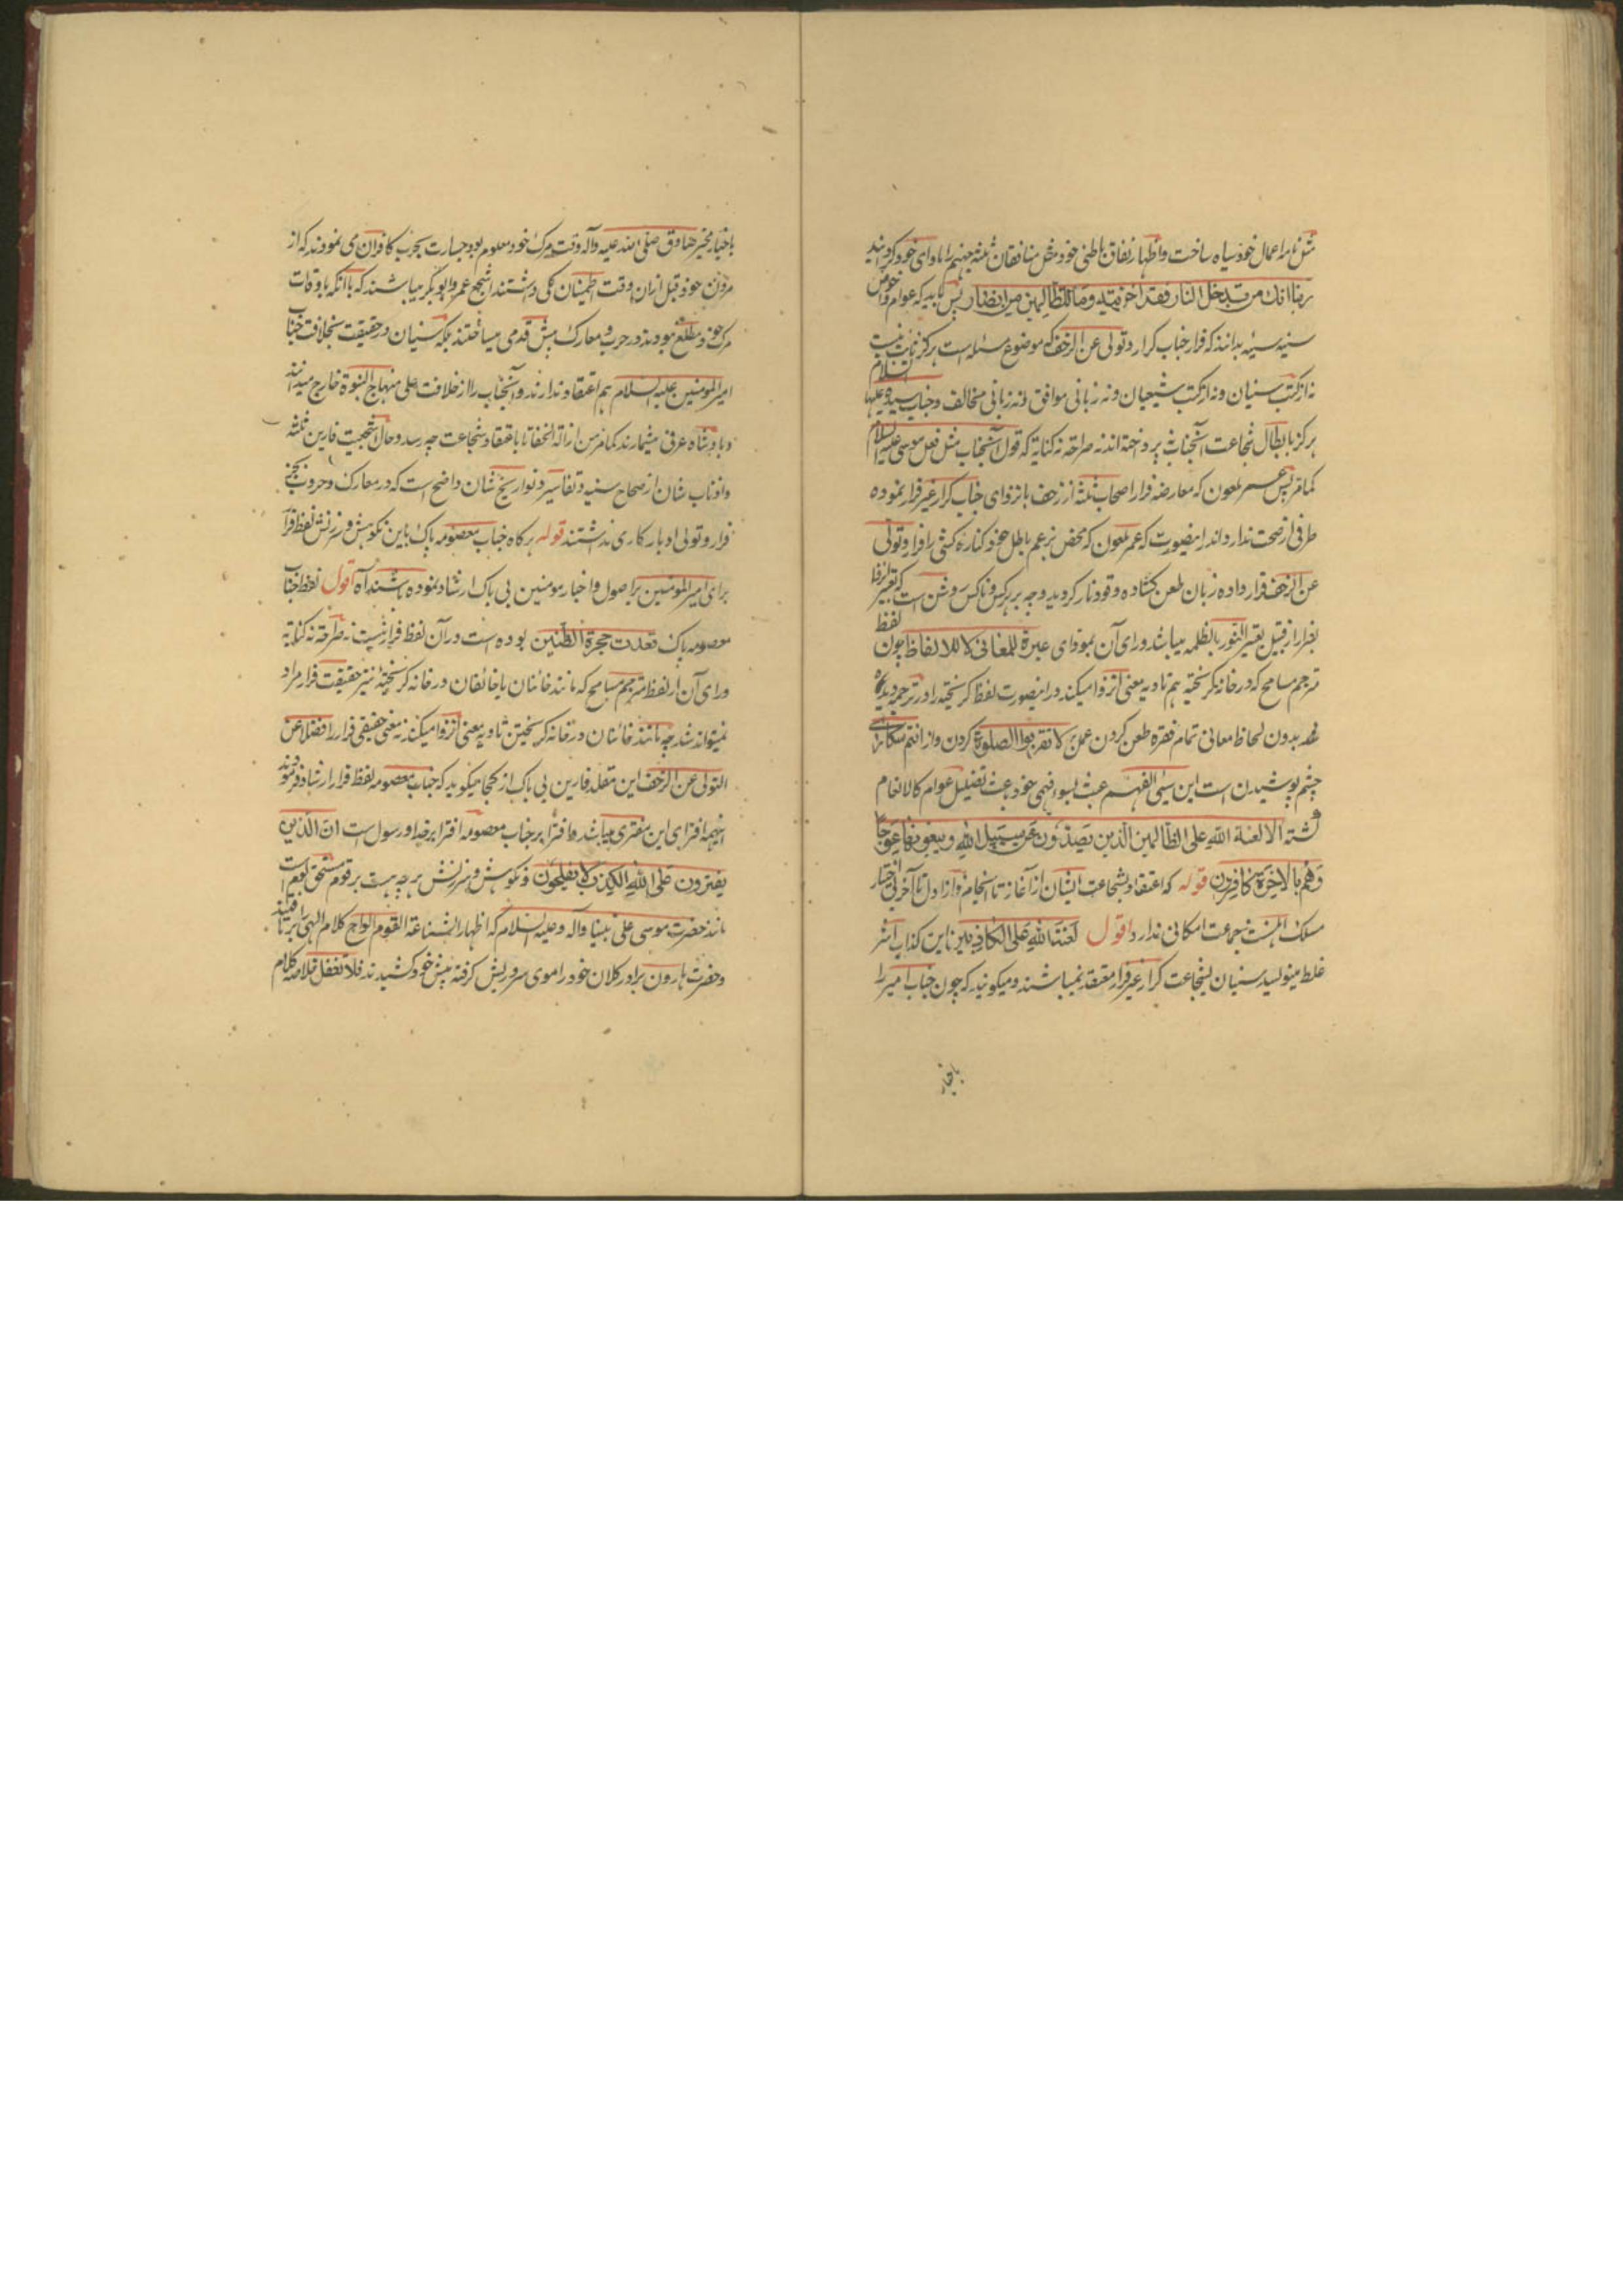 مثل نامه اعمال خود سیاه ساخت و اظهار نفاق باطنی خود مثل منافقان ثلثه جهنم را ماوای خود گردانید
ربنا انك من تدخل النار فقد اخزیته وما للظالمین من انصار پس باید که عوام و خواص
سنیه سنیه بدانند که فرار جناب کرار و تولی عن الزحف که موضوع مسئله است هرگز ثابت نیست
نه از کتب سنیان و نه از کتب شیعیان و نه زبانی موافق و نه زبانی مخالف و جناب سیده علیها السلام
هرگز بابطال شجاعت آنجناب نپرداخته اند نه صراحة نه کنایة که قول آنجناب مثل فعل موسی علیه السلام
کمامر پس عمر لمعون که معارضه فرار اصحاب ثلثه از زحف بانزوای جناب کرار غیر فرار نموده
طرفی از صحت ندارد و اندرینصورت که عمر لمعون که محض بزعم باطل خود کناره کشی را فرار و تولی
عن الزحف قرار داده زبان طعن کشاده وقود نار گردید وجه بر هرکس و ناکس روشن است که تعبیر انزوا
بفرار از قبیل تعبیر النور بالظلمه میباشد ورای آن بمودای عبرة للمعانی لا للالفاظ چون لفظ
مترجم مسامح که در خانه گریخته هم تاویه معنی انزوا میکند درینصورت لفظ گریخته را در ترجمه دیده
بدون لحاظ معانی تمام فقره طعن کردن عمل بر لا تقربوا الصلوة کردن و از انتم سکاری
چشم پوشیدن است این سیئ الفهم عبث بسوء فهمی خود باعث تضلیل عوام کالانعام
گشته الا لعنة الله علی الظالمین الذین یصدون عن سبیل الله ویبغونها عوجا
وهم بالاخرة کافرون قوله که اعتقاد بشجاعت ایشان از آغاز تا انجام و از اول تا آخر بی اختیار
مسلک اهلسنت جماعت امکانی ندارد اقول لعنة الله علی الکافرین این کذاب اشر
غلط مینویسد سنیان بشجاعت کرار غیر فرار معتقد نمیباشند و میگویند که چون جناب امیر را
باخبار
باخبار مخبر صادق صلی الله علیه وآله وقت مرگ خود معلوم بود جسارت بحرب کافران می نمودند که از
مردن خود قبل ازان وقت اطمینان کلی داشتند اشجع عمر و ابوبکر میباشند که باآنکه باوقات
مرگ خود مطلع نبودند در حرب و معارک پیش قدمی میساختند بلکه سنیان در حقیقت بخلافت جناب
امیرالمومنین علیه السلام هم اعتقاد ندارند و آنجناب را از خلافت علی منهاج النبوة خارج میدانند
و بادشاه عرفی میشمارند کمامر من ازالة الخفا تا باعتقاد شجاعت چه رسد و حال اشجعیت فارین ثلثه
و اذناب شان از صحاح سنیه و تفاسیر و تواریخ شان واضح است که در معارک و حروب بجز
فرار و تولی ادبار کاری نداشتند قوله هرگاه جناب معصومه پاک باین نکوهش و سرزنش لفظ فرار
برای امیرالمومنین براصول و اخبار مومنین بی باک ارشاد نموده باشند آه اقول لفظ جناب
معصومه پاک تعدت حجرة الظنین بوده است و درآن لفظ فرار نیست نه صراحة نه کنایة
ورای آن از لفظ مترجم مسامح که مانند خائنان یا خائفان در خانه گریختهٔ نیز حقیقت فرار مراد
نمیتواند شد چه مانند خائنان در خانه گریختن تاویه معنی انزوا میکند نه معنی حقیقی فرار را فضلا عن
التولی عن الزحف این مقلد فارین بی باک از کجا میگوید که جناب معصومه لفظ فرار ارشاد فرمودند
اینهمه افترای این مفتری میباشد و افترا بر جناب معصومه افترا برخدا و رسول است ان الذین
یفترون علی الله الکذب لا یفلحون و نکوهش و سرزنش هرچه هست بر قوم مستحق لوم است
مانند حضرت موسی علی نبینا وآله وعلیه السلام که اظهارا لشناعة القوم الواح کلام الهی را بر تافتند
و حضرت هارون برادر کلان خود را موی سر و ریش گرفته پیش خود کشیدند فلا تغفل خلاصه کلام